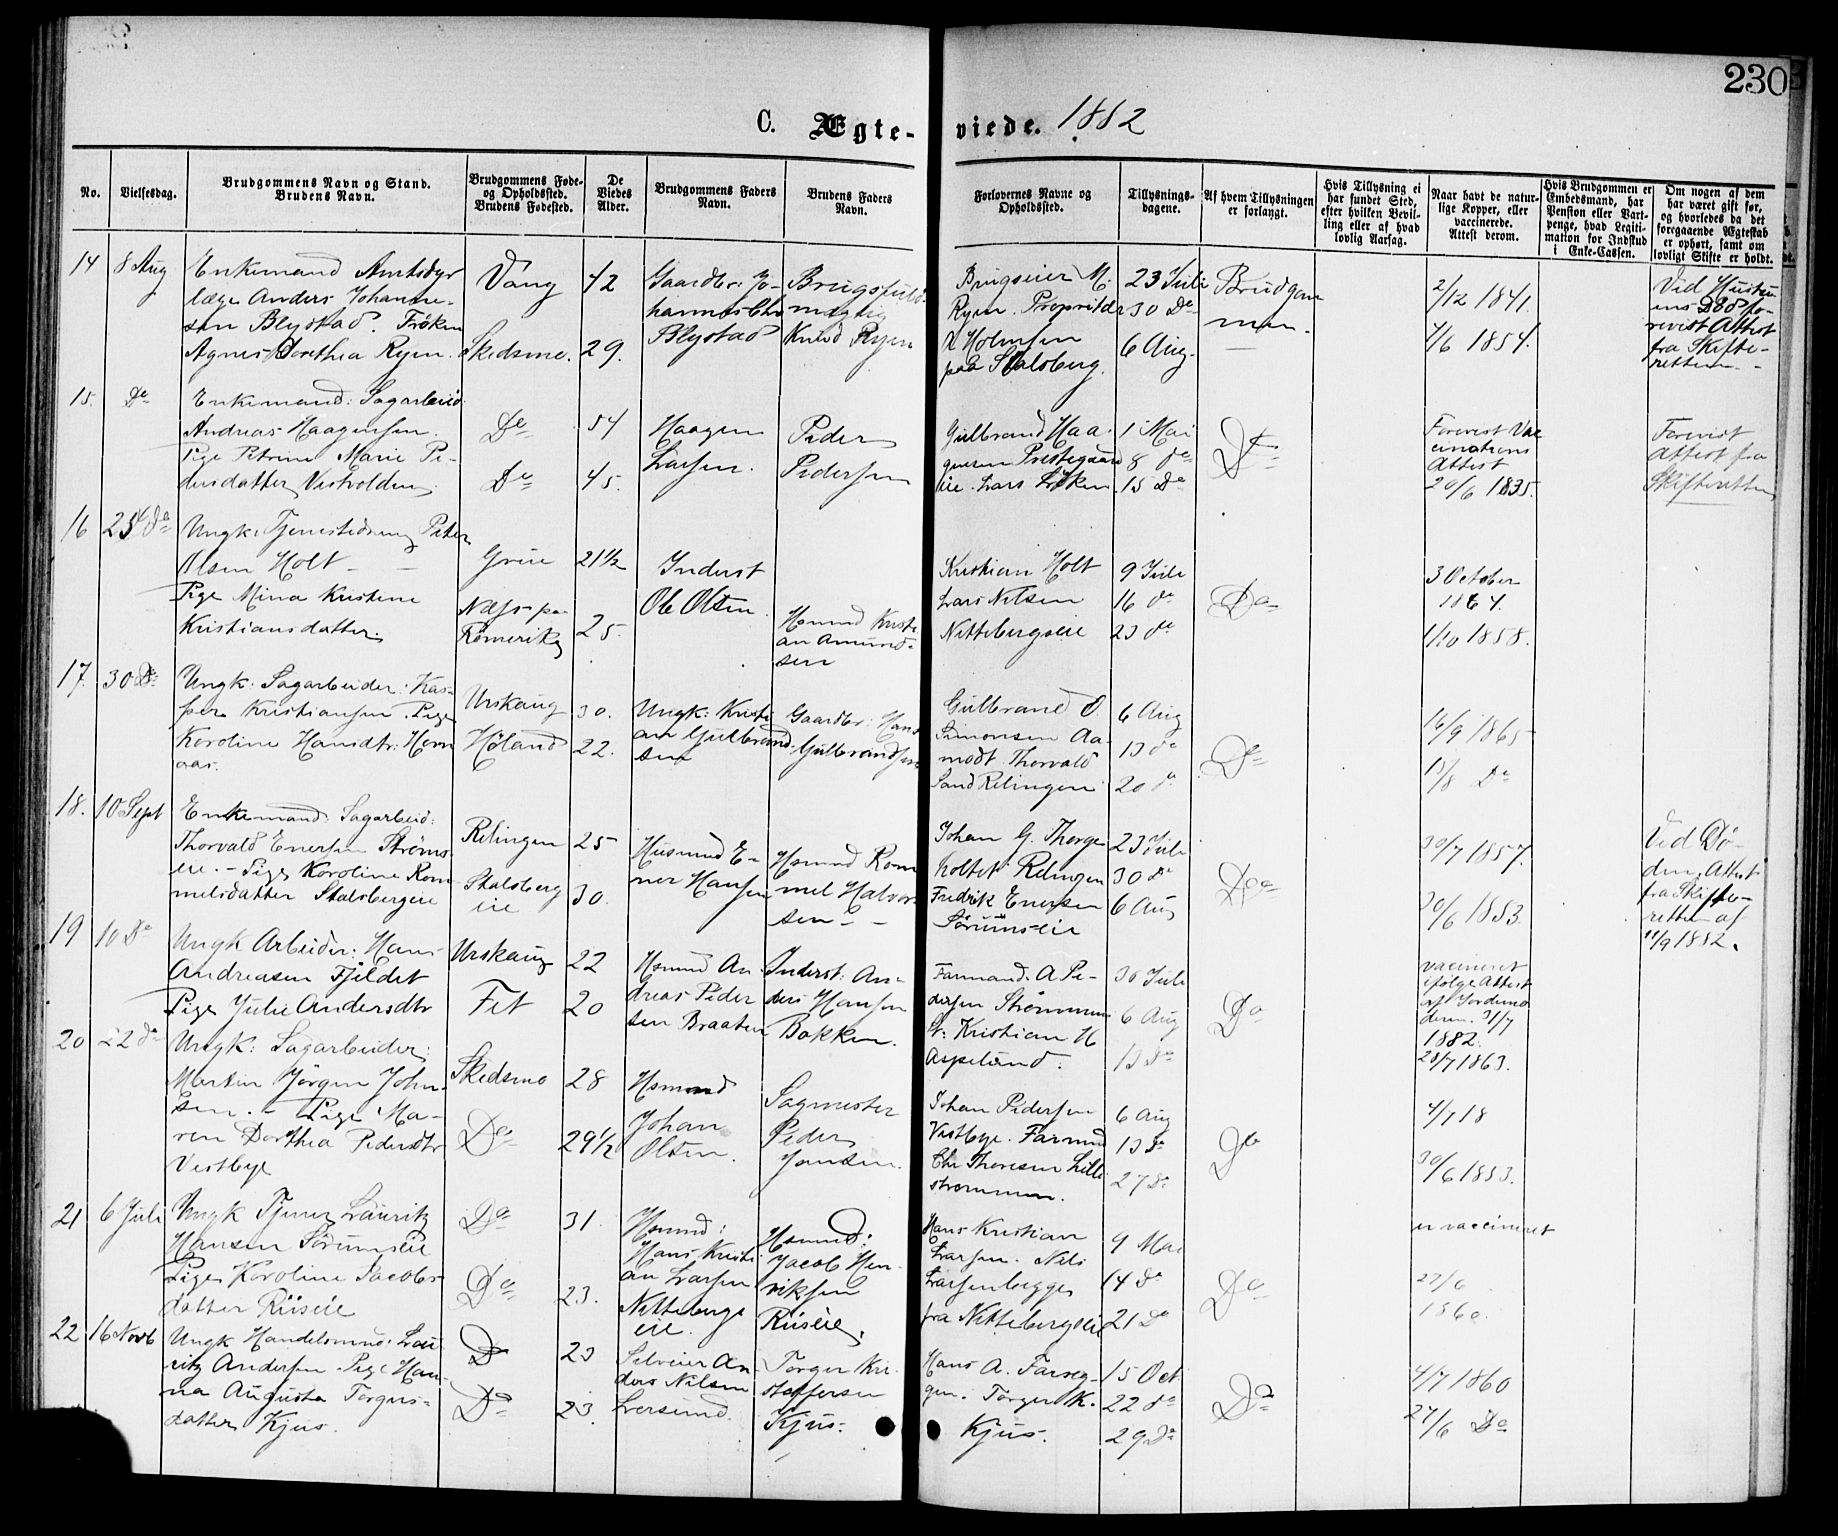 230
C. Ægte-
viede. 1882
No.
Vielsesdag.
Brudgommens Navn og Stand.
Brudens Navn.
Brudgommens Føde-
og Opholdssted.
Brudens Fødested.
De
Viedes
Alder.
Brudgommens Faders
Navn.
Brudens Faders
Navn.
Forlovernes Navne og
Opholdssted.
Tillysnings-
dagene.
Af hvem Tillysningen
er forlangt.
Hvis Tillysning ei
har fundet Sted,
efter hvilken Bevil-
ling eller af hvad
lovlig Aarsag.
Naar havt de natur-
lige Kopper, eller
vaccinerede.
Attest derom.
Hvis Brudgommen er
Embedsmand, har
Pension eller Vart-
penge, hvad Legiti-
mation for Indskud
i Enke-Cassen.
Om nogen af dem
har været gift før,
og hvorledes da det
foregaaende Ægteskab
er ophørt, samt om
lovligt Skifte er holdt.
14
8 Aug
Enkemand Amtsdyr
læge Anders Johanne-
sen Blystad. Frøken
Agnes Dorethea Ryen
Vang
Skedsmo.
42
29.
Gaardbr: Jo-
hannes Chr
Blystad
Brugsfuld-
mægtig
Knud Ryen
Brugseier M.
Ryen. Proprietær
Holmsen
paa Stalsberg.
23 Juli
30 De
6 Aug.
Brudgom
men.
2/12 1841.
4/6 1854.
Ved Hustru
ens Død fo-
revist Attest
fra Skifte-
retten
15.
De
Enkemand: Sagarbeid
Andreas Haagensen.
Pige Petrine Marie Pe-
dersdatter Vestvolden
De
De
54
45.
Haagen
Larsen.
Peder
Pedersen
Gulbrand Haa-
gensen Prestegaard
eie. Lars Løken
1 Mai
8 de
15 De
De
Forevist Vac
cinations
Attest
20/6 1835.
Forevist
Attest fra
Skifteretten
16
25 de
Ungk: Tjenestedreng Peter
Olsen Holt
Pige Mina Kristine
Kristiansdatter
Grue
Næs paa
Romerike
21 1/2
25.
Inderst
Ole Olsen.
Hsmand Kristi
an Amund-
sen
Kristian Holt
Lars Nilsen
Nittebergseie
9 Juli
16 de
23 de
De
3 October
1864.
1/10 1858.
17.
30 De
Ungk: Sagarbeider: Kas-
per Kristiansen. Pige
Karoline Hansdtr: Horn
aas.
Urskaug
Høland
30.
22.
Ungk: Kristi
an Gulbrand-
sen
Gaardbr: Hans
Gulbrandsen
Gulbrand O.
Simonsen Aa-
modt. Thorvald
Sand Relingen
6 Aug
13 de
20 de
De
16/9 1865
15/8 De
18.
10 Sept
Enkemand: Sagarbeid:
Thorvald Enersen Strøms
eie. - Pige Karoline Rom
melsdatter Stalsbergeie
Relingen
Stalsberg
eie
25
30.
Husmand E-
ner Hansen
Hsmand Rom
mel Halvor
sen
Johan G. Thorge
holtet Relingen
Fredrik Enersen
Sørumseie
23 Juli
30 De
6 Aug
De
30/7 1857.
30/6 1853.
Ved Dø-
den. Attest
fra Skifte-
retten af
11/9 1882.
19
10 De
Ungk Arbeider: Hans
Andreasen Fjeldet
Pige Julie Andersdtr
Urskaug
Fet
22
20
Hsmand An-
dreas Peder
sen Braaten
Inderst: An-
ders Hansen
Bakken.
Farmand. A Pe-
dersen Strømmen
Kristian H
Aspelund.
30 Juli
6 Aug
13 De
De
vaccineret
ifølge Attest
af Jordemo
deren. 31/7
1882.
28/7 1863.
20
22 de
Ungk: Sagarbeider:
Martin Jørgen John-
sen. - Pige Ma-
ren Dorthea Pedersdtr
Vestbye
Skedsmo
De
28
29 1/2
Hsmand
Johan
Olsen.
Sagmester
Peder
Jansen.
Johan Pedersen
Vestbye. Farmand
Chr Thoresen Lille
strømmen.
6 Aug
13 De
27 De
De
4/7 18
30/6 1853.
21
6 Juli
Ungk Tjener Lauritz
Hansen Sørumseie
Pige Karoline Jacobs-
datter Riiseie
De
De
31
23.
Hsmand:
Hans Kristi
an Larsen
Nittebergs
eie.
Hsmand:
Jacob Hen-
riksen
Riiseie,
Hans Kristian
Larsen. Nils
Larsen begge
fra Nittebergseie
9 Mai
14 de
21 De
De
er vaccineret
27/6
1860.
22
16 Novb
Ungk Handelsmnd: Lau
ritz Andersen. Pige Han-
na Augusta Torgers-
datter Kjus.
De
De
23
23.
Selveier An
ders Nilsen
Lersund.
Torger Kri-
stoffersen
Kjus.
Hans A. Farseg-
gen. Torger K.
Kjus.
15 Oct
22 de
29 De
De
4/7 1860
27/6 De